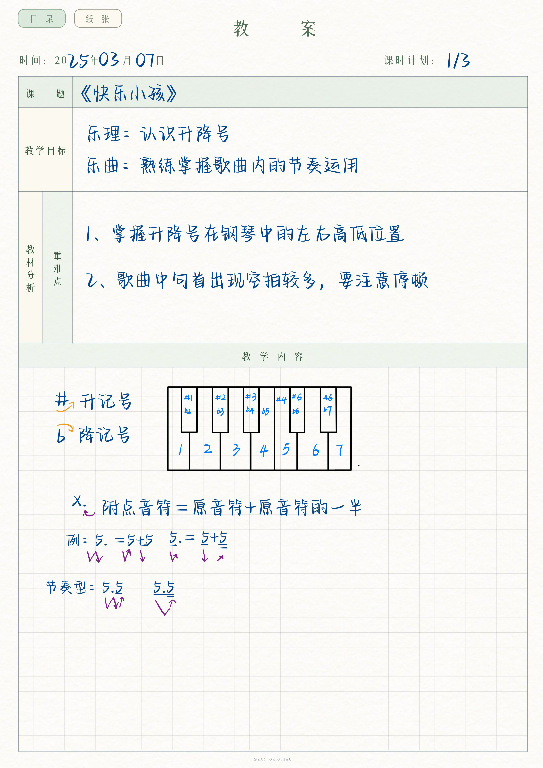 目录 纸张
教 案
时间：2025年03月07日 课时计划：1/3
课 题 《快乐小孩》
教学目标
乐理：认识升降号
乐曲：熟练掌握歌曲内的节奏运用
教材分析 重难点
1、掌握升降号在钢琴中的左右高低位置
2、歌曲中句首出现空拍较多，要注意停顿
教 学 内 容
# 升记号
b 降记号
#1 #2 #3 #4 #5 #6
b2 b3 b4 b5 b6 b7
1 2 3 4 5 6 7
X. 附点音符=原音符+原音符的一半
例：5. =5+5 5.=5+5
节奏型：5.5 5.5